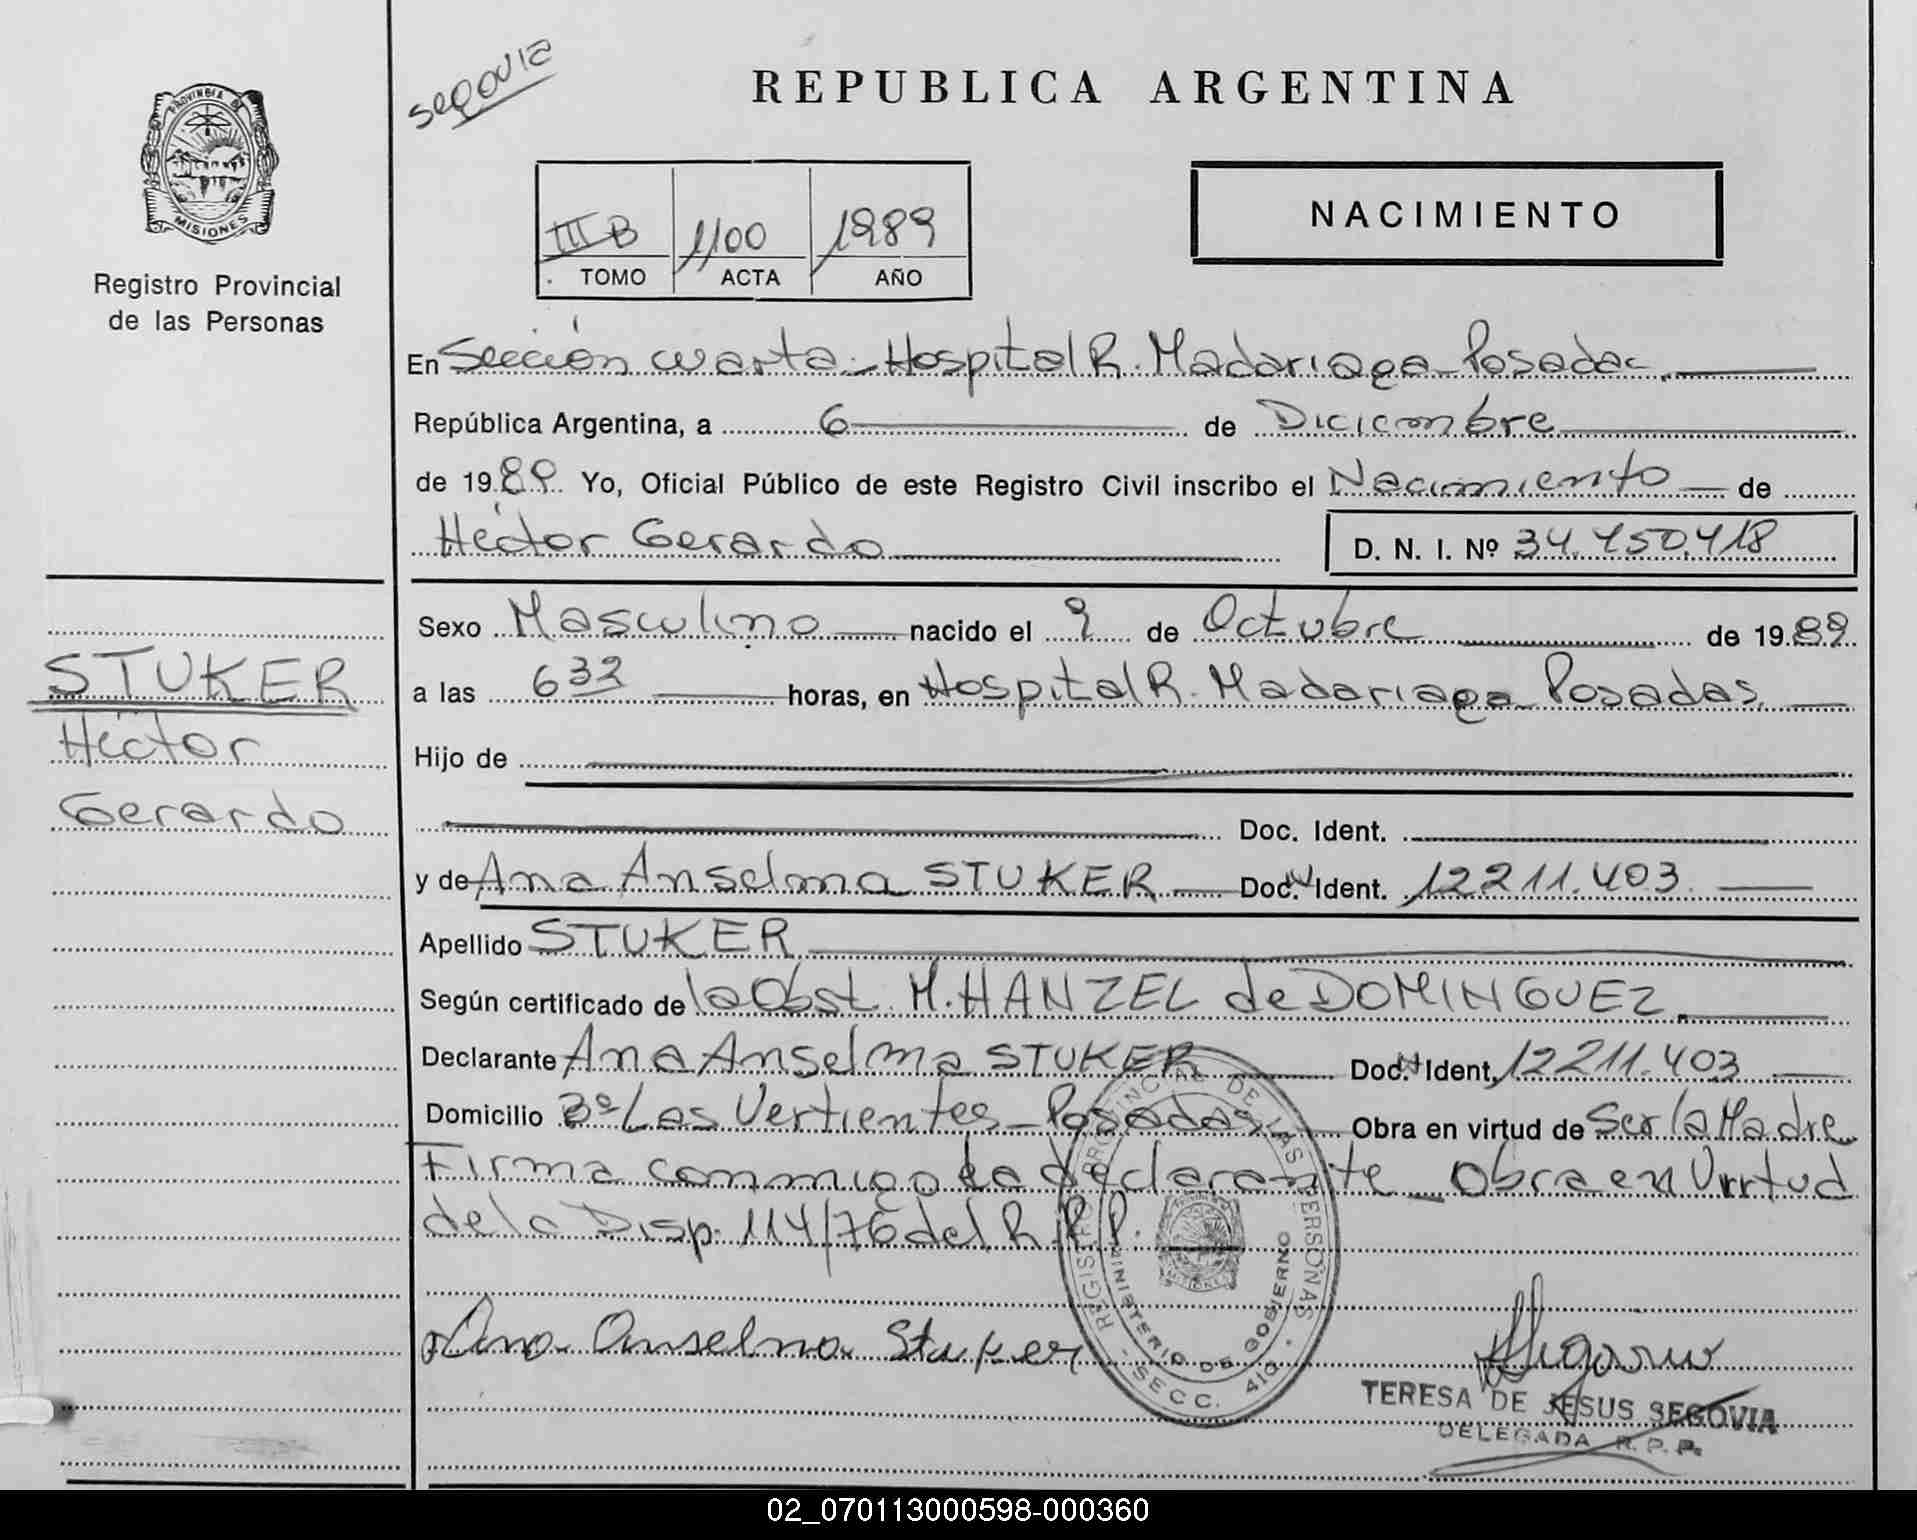 segovia
REPUBLICA ARGENTINA
PROVINCIA DE MISIONES
Registro Provincial
de las Personas
III B 1100 1989
TOMO ACTA AÑO
NACIMIENTO
En Sección cuarta - Hospital R. Madariaga - Posadas
República Argentina, a 6 de Diciembre
de 1989 Yo, Oficial Público de este Registro Civil inscribo el Nacimiento de
Héctor Gerardo D. N. I. Nº 34.450.418
Sexo Masculino nacido el 9 de Octubre de 1989
STUKER
a las 6 32 horas, en Hospital R. Madariaga - Posadas
Héctor
Hijo de
Gerardo
Doc. Ident.
y de Ana Anselma STUKER Doc. Ident. 12211.403
Apellido STUKER
Según certificado de la Obst. M. HANZEL de DOMINGUEZ
Declarante Ana Anselma STUKER Doc. Ident. 12211.403
Domicilio Bº Las Vertientes - Posadas Obra en virtud de Ser la Madre
Firma conmigo la declarante - Obra en Virtud
de la Disp. 114/76 del R.P.P.
REGISTRO PROVINCIAL DE LAS PERSONAS
MINISTERIO DE GOBIERNO
MISIONES
- SECC. 4ta -
Ana Anselma Stuker
TERESA DE JESUS SEGOVIA
DELEGADA R. P. P.
02_070113000598-000360